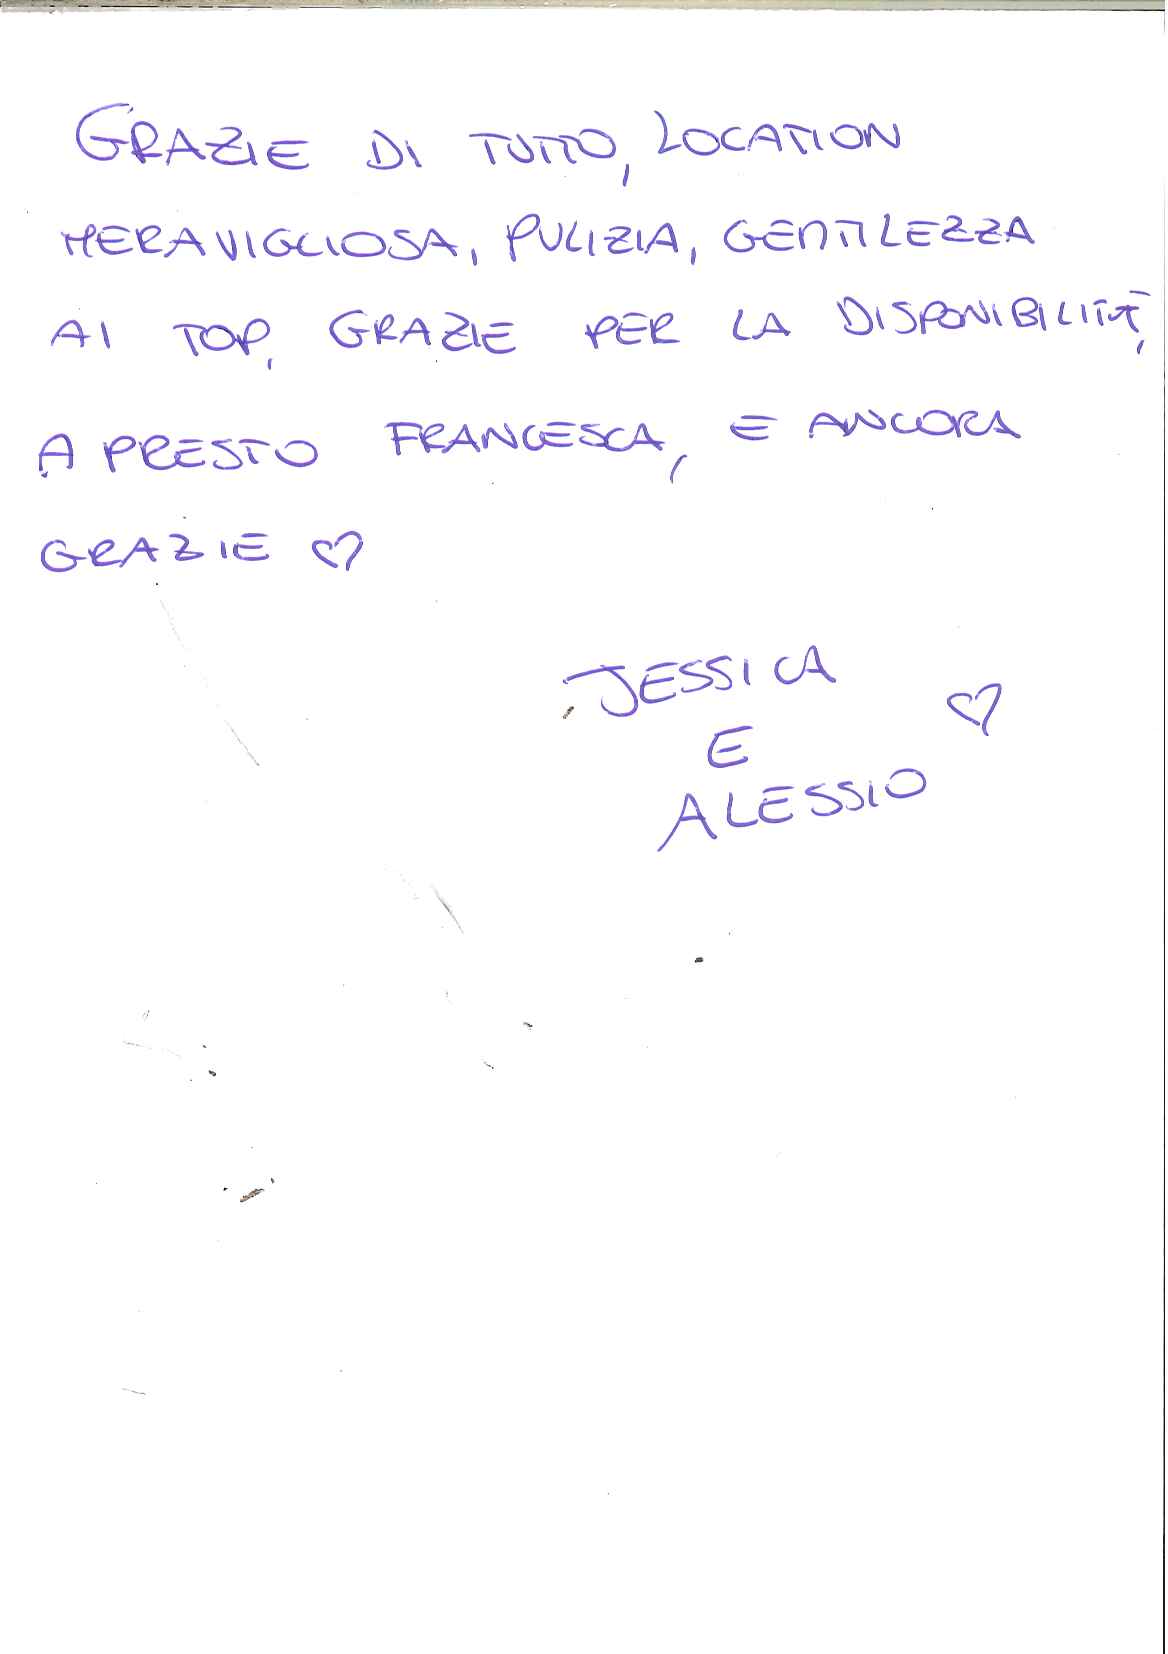 GRAZIE DI TUTTO, LOCATION
MERAVIGLIOSA, PULIZIA, GENTILEZZA
AI TOP, GRAZIE PER LA DISPONIBILITÀ,
A PRESTO FRANCESCA, E ANCORA
GRAZIE ♡
JESSICA
E ♡
ALESSIO